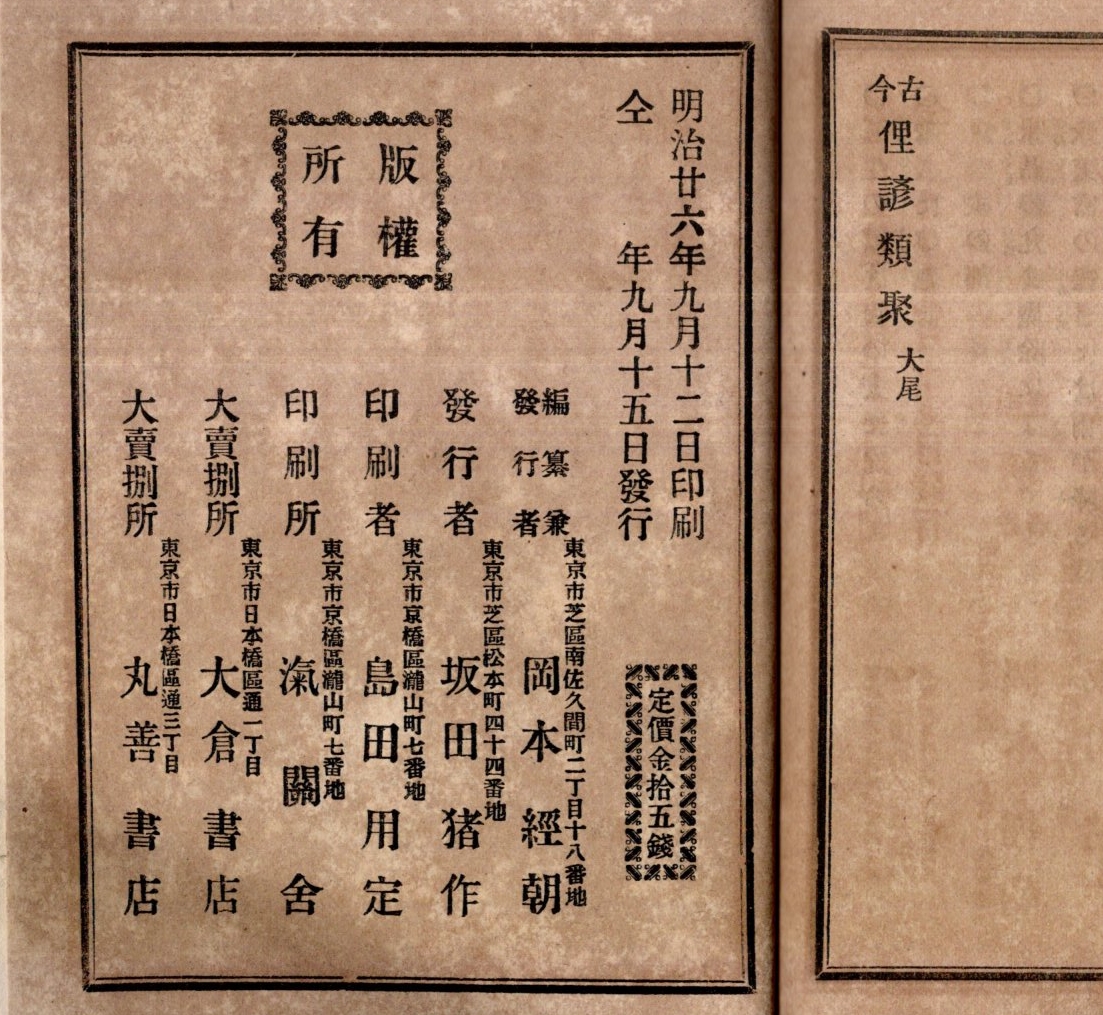 古今俚諺類聚大尾
明治廿六年九月十二日印刷
仝年九月十五日發行
定價金拾五錢
版權
所有
編纂兼
發行者
東京市芝區南佐久間町二丁目十八番地
岡本經朝
發行者
東京市芝區松本町四十四番地
坂田猪作
印刷者
東京市京橋區瀧山町七番地
島田用定
印刷所
東京市京橋區瀧山町七番地
滊關舍
大賣捌所
東京市日本橋區通一丁目
大倉書店
大賣捌所
東京市日本橋區通三丁目
丸善書店